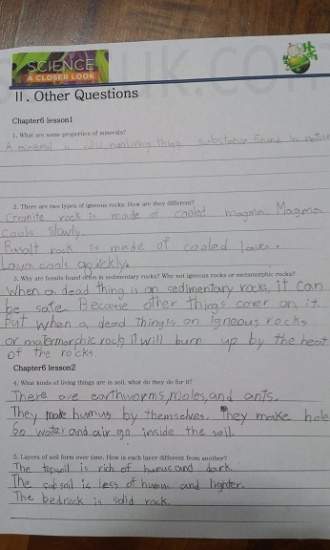 SCIENCE
A CLOSER LOOK
uk.com
II. Other Questions
Chapter6 lesson1
1. What are some properties of minerals?
A mineral is solid, nonliving thing substance found in nature
2. There are two types of igneous rocks. How are they different?
Granite rock is made of cooled magma. Magma
cools slowly.
Basalt rock is made of cooled lava.
Lava cools quickly.
3. Why are fossils found often in sedimentary rocks? Why not igneous rocks or metamorphic rocks?
When a dead thing is on sedimentary rocks, it can
be safe. Because other things cover on it.
But when a dead thing is on igneous rocks
or matermorphic rock, it will burn up by the heat
of the rocks.
Chapter6 lesson2
4. What kinds of living things are in soil, what do they do for it?
There are earthworms, moles, and ants.
They make humus by themselves. They make hole
So water and air go inside the soil.
5. Layers of soil form over time. How is each layer different from another?
The topsoil is rich of humus and dark.
The subsoil is less of humus and lighter.
The bedrock is solid rock.